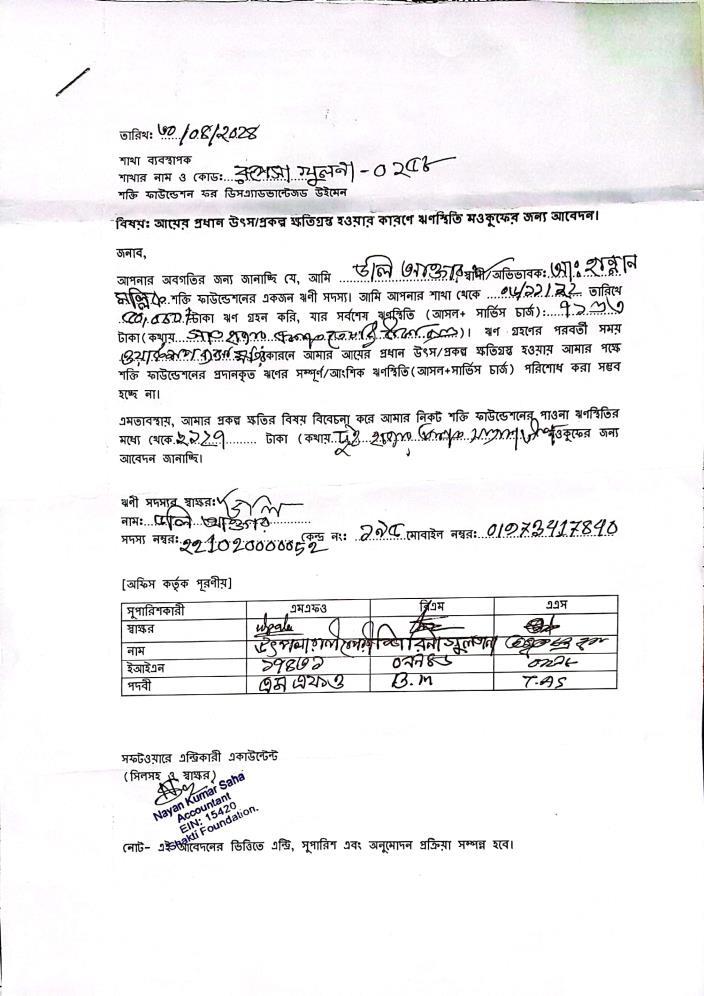 তারিখ: ৩০/০৪/২০২৪
শাখা ব্যবস্থাপক
শাখার নাম ও কোড: রূপসা খুলনা - ০২৫৮
শক্তি ফাউন্ডেশন ফর ডিসএ্যাডভান্টেজড উইমেন
বিষয়: আয়ের প্রধান উৎস/প্রকল্প ক্ষতিগ্রস্ত হওয়ার কারণে ঋণস্থিতি মওকুফের জন্য আবেদন।
জনাব,
আপনার অবগতির জন্য জানাচ্ছি যে, আমি ডলি আক্তার স্বামী/অভিভাবক: আঃ হান্নান
মল্লিক শক্তি ফাউন্ডেশনের একজন ঋণী সদস্য। আমি আপনার শাখা থেকে তারিখে
টাকা ঋণ গ্রহন করি, যার সর্বশেষ ঋণস্থিতি (আসল+ সার্ভিস চার্জ):
টাকা (কথায় সাত হাজার)। ঋণ গ্রহণের পরবর্তী সময়
কারনে আমার আয়ের প্রধান উৎস/প্রকল্প ক্ষতিগ্রস্ত হওয়ায় আমার পক্ষে
শক্তি ফাউন্ডেশনের প্রদানকৃত ঋণের সম্পূর্ণ/আংশিক ঋণস্থিতি(আসল+সার্ভিস চার্জ) পরিশোধ করা সম্ভব
হচ্ছে না।
এমতাবস্থায়, আমার প্রকল্প ক্ষতির বিষয় বিবেচনা করে আমার নিকট শক্তি ফাউন্ডেশনের পাওনা ঋণস্থিতির
মধ্যে থেকে টাকা (কথায় দুই হাজার মওকুফের জন্য
আবেদন জানাচ্ছি।
ঋণী সদস্যর স্বাক্ষর: ডলি
নাম: ডলি আক্তার
সদস্য নম্বর: ২2102000052 কেন্দ্র নং: ১৯৫ মোবাইল নম্বর: 01973417840
[অফিস কর্তৃক পূরণীয়]
সুপারিশকারী এমএফও বিএম এএস
স্বাক্ষর
নাম সুলতানা
ইআইএন
পদবী এম এফ ও B.M T.AS
সফটওয়ারে এন্ট্রিকারী একাউন্টেন্ট
(সিলসহ ও স্বাক্ষর)
Nayan Kumar Saha
Accountant
EIN: 15420
Shakti Foundation.
নোট- এই আবেদনের ভিত্তিতে এন্ট্রি, সুপারিশ এবং অনুমোদন প্রক্রিয়া সম্পন্ন হবে।